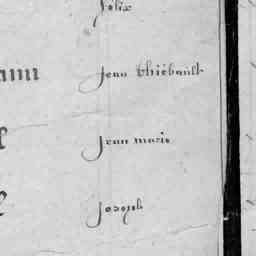 felix
jean thiébault
jean marie
joseph